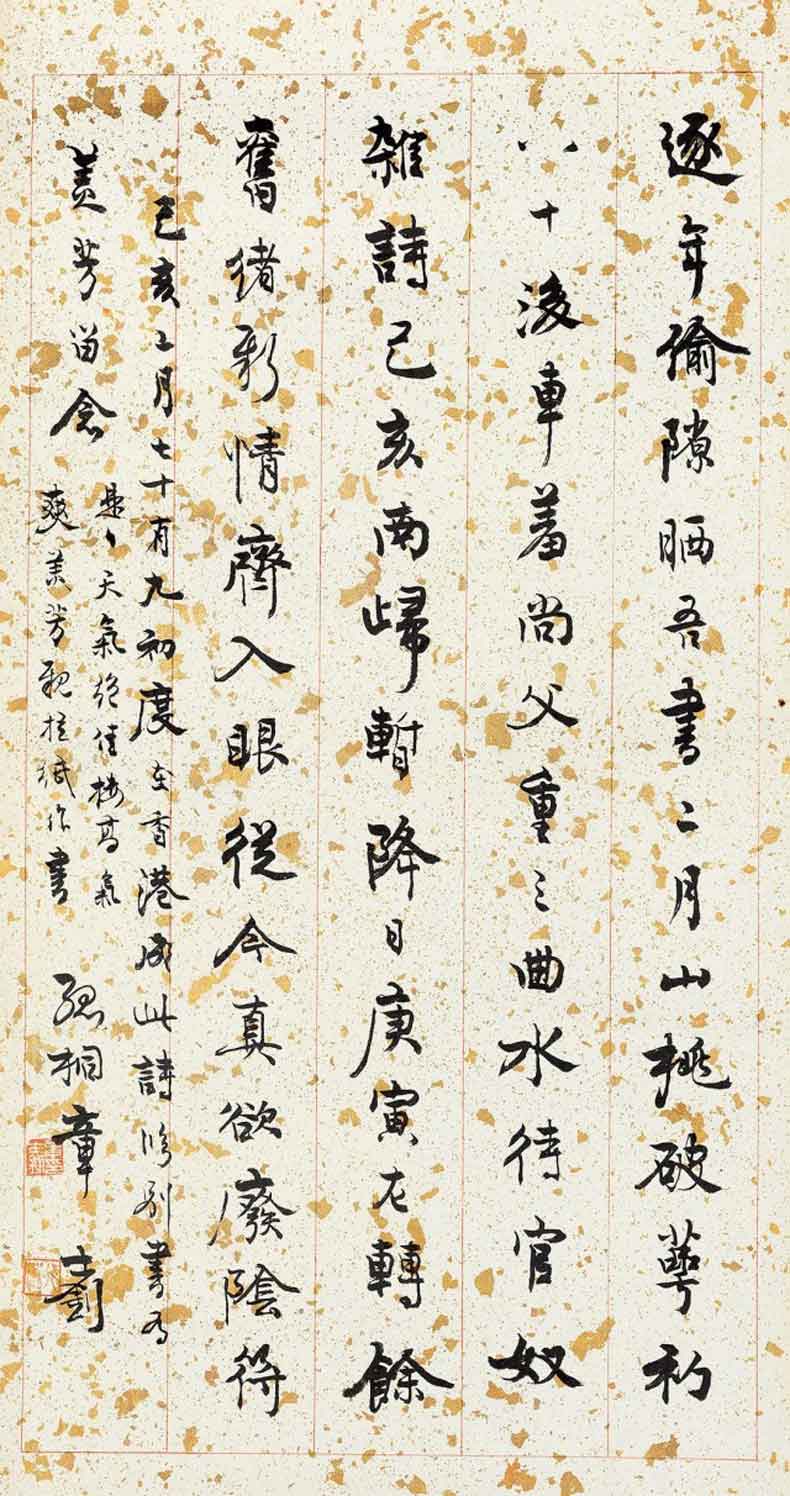 逐年偷隙晒吾書二月山桃破萼初
八十後車羞尚父重三曲水待官奴
雜詩己亥南歸暫降日庚寅左轉餘
舊緒新情齊入眼從今真欲廢陰符
己亥二月七十有九初度在香港成此詩臨別書為
美芳留念
是日天氣絕佳樓高氣
爽美芳親拉紙作書
孤桐章士釗